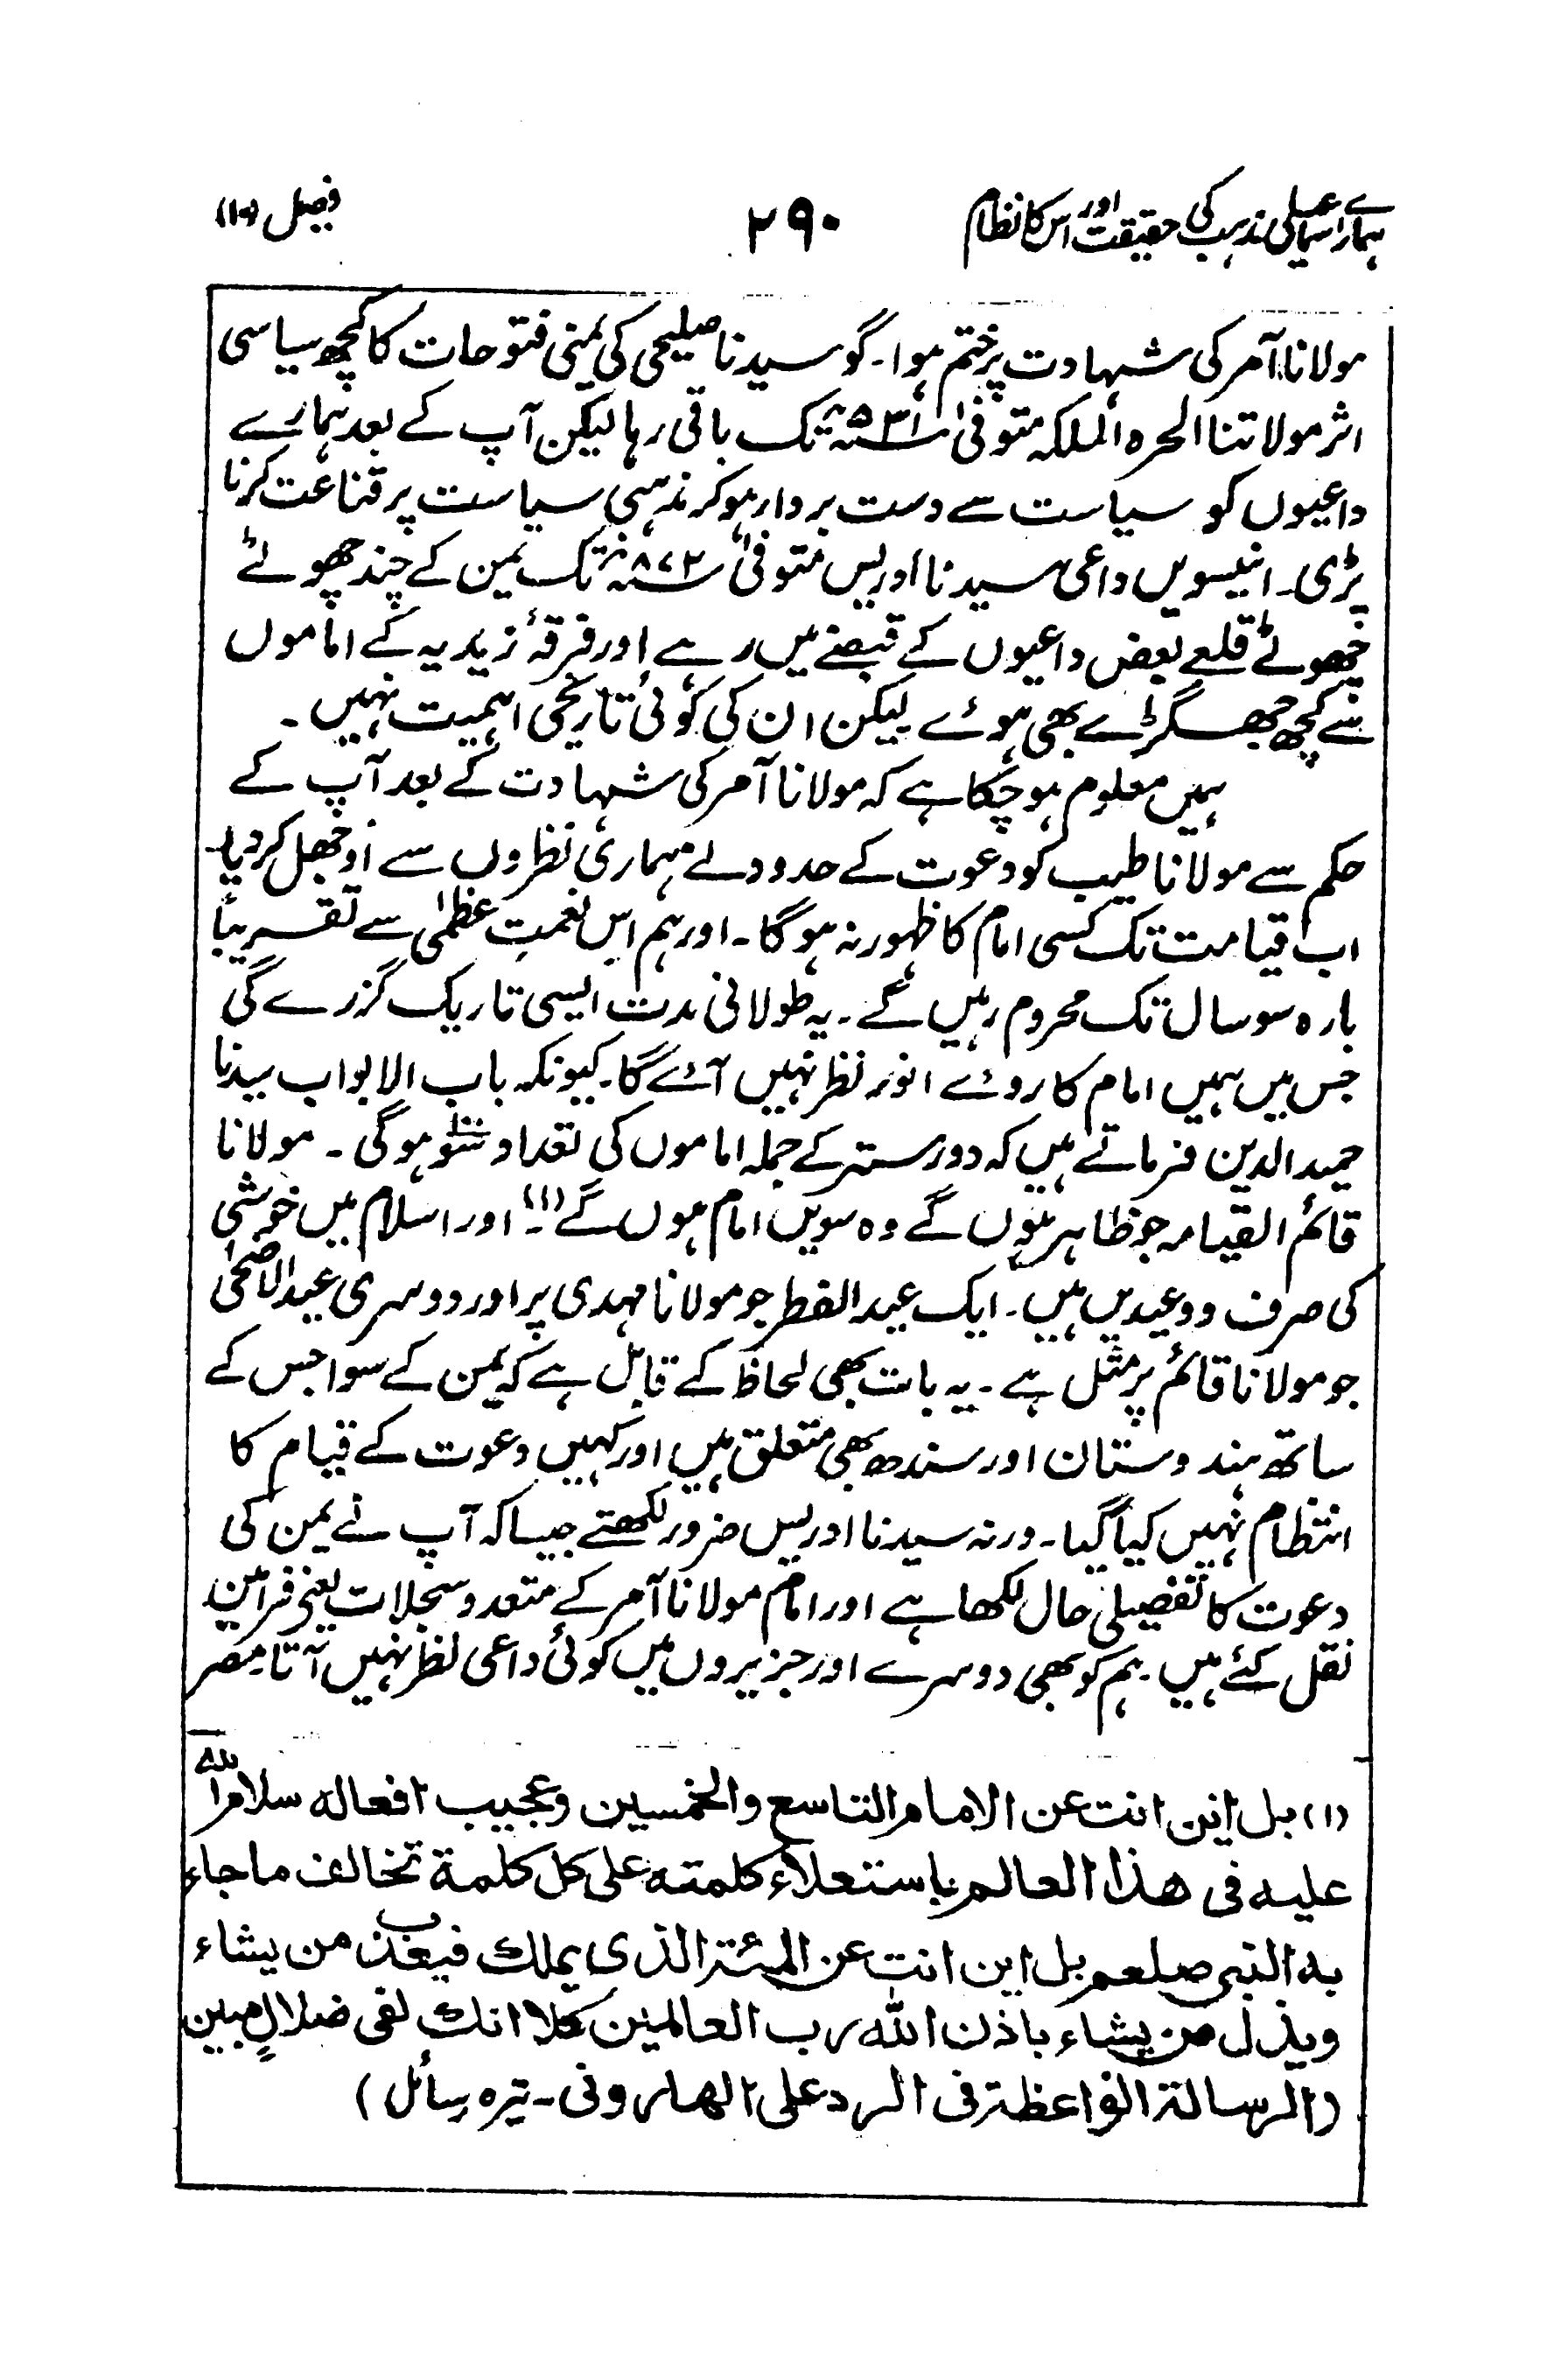 ہمارے اسماعیلی مذہب کی حقیقت اور اس کا نظام ۲۹۰ فصل (۱۰)
مولانا آمر کی شہادت پر ختم ہوا۔ گو سیدنا صلیحی کی یمنی فتوحات کا کچھ سیاسی
اثر مولاتنا الحرہ الملکہ متوفیٰ ۵۳۱ھ تک باقی رہا لیکن آپ کے بعد ہمارے
داعیوں کو سیاست سے دست بردار ہو کر مذہبی سیاست پر قناعت کرنا
پڑی۔ انیسویں داعی سیدنا ادریس متوفیٰ ۸۷۲ھ تک یمن کے چند چھوٹے
چھوٹے قلعے بعض داعیوں کے قبضے میں رہے اور فرقۂ زیدیہ کے اماموں
سے کچھ جھگڑے بھی ہوئے لیکن ان کی کوئی تاریخی اہمیت نہیں۔
ہمیں معلوم ہو چکا ہے کہ مولانا آمر کی شہادت کے بعد آپ کے
حکم سے مولانا طیب کو دعوت کے حدود نے ہماری نظروں سے اوجھل کر دیا۔
اب قیامت تک کسی امام کا ظہور نہ ہوگا۔ اور ہم اس نعمتِ عظمیٰ سے تقریباً
بارہ سو سال تک محروم رہیں گے۔ یہ طولانی مدت ایسی تاریک گزرے گی
جس میں ہمیں امام کا روئے انور نظر نہیں آئے گا۔ کیونکہ باب الابواب سیدنا
حمید الدین فرماتے ہیں کہ دور ستر کے جملہ اماموں کی تعداد سو ۱۰۰ ہوگی۔ مولانا
قائم القیامہ جو ظاہر ہوں گے وہ سویں امام ہوں گے (۱)۔ اور اسلام میں خوشی
کی صرف دو عیدیں ہیں۔ ایک عید الفطر جو مولانا مہدی پر اور دوسری عید الاضحیٰ
جو مولانا قائم پر مثل ہے۔ یہ بات بھی لحاظ کے قابل ہے کہ یمن کے سوا جس کے
ساتھ ہندوستان اور سندھ بھی متعلق ہیں اور کہیں دعوت کے قیام کا
انتظام نہیں کیا گیا۔ ورنہ سیدنا ادریس ضرور لکھتے جیسا کہ آپ نے یمن کی
دعوت کا تفصیلی حال لکھا ہے اور امام مولانا آمر کے متعدد سجلات یعنی فرامین
نقل کئے ہیں۔ ہم کو بھی دوسرے اور جزیروں میں کوئی داعی نظر نہیں آتا۔ مصر
(۱) بل این انت عن الامام التاسع والخمسین وعجیب افعاله سلام الله
علیه فی هذا العالم باستعلاء کلمته علی کل کلمة تخالف ما جاء
به النبی صلعم بل این انت عن المئة الذی یملك فیعذب من یشاء
ویذل من یشاء باذن الله رب العالمین کلا انك لفی ضلالٍ مبین
(الرسالة الواعظة فی الرد علی الهارونی۔ تیرہ رسائل)